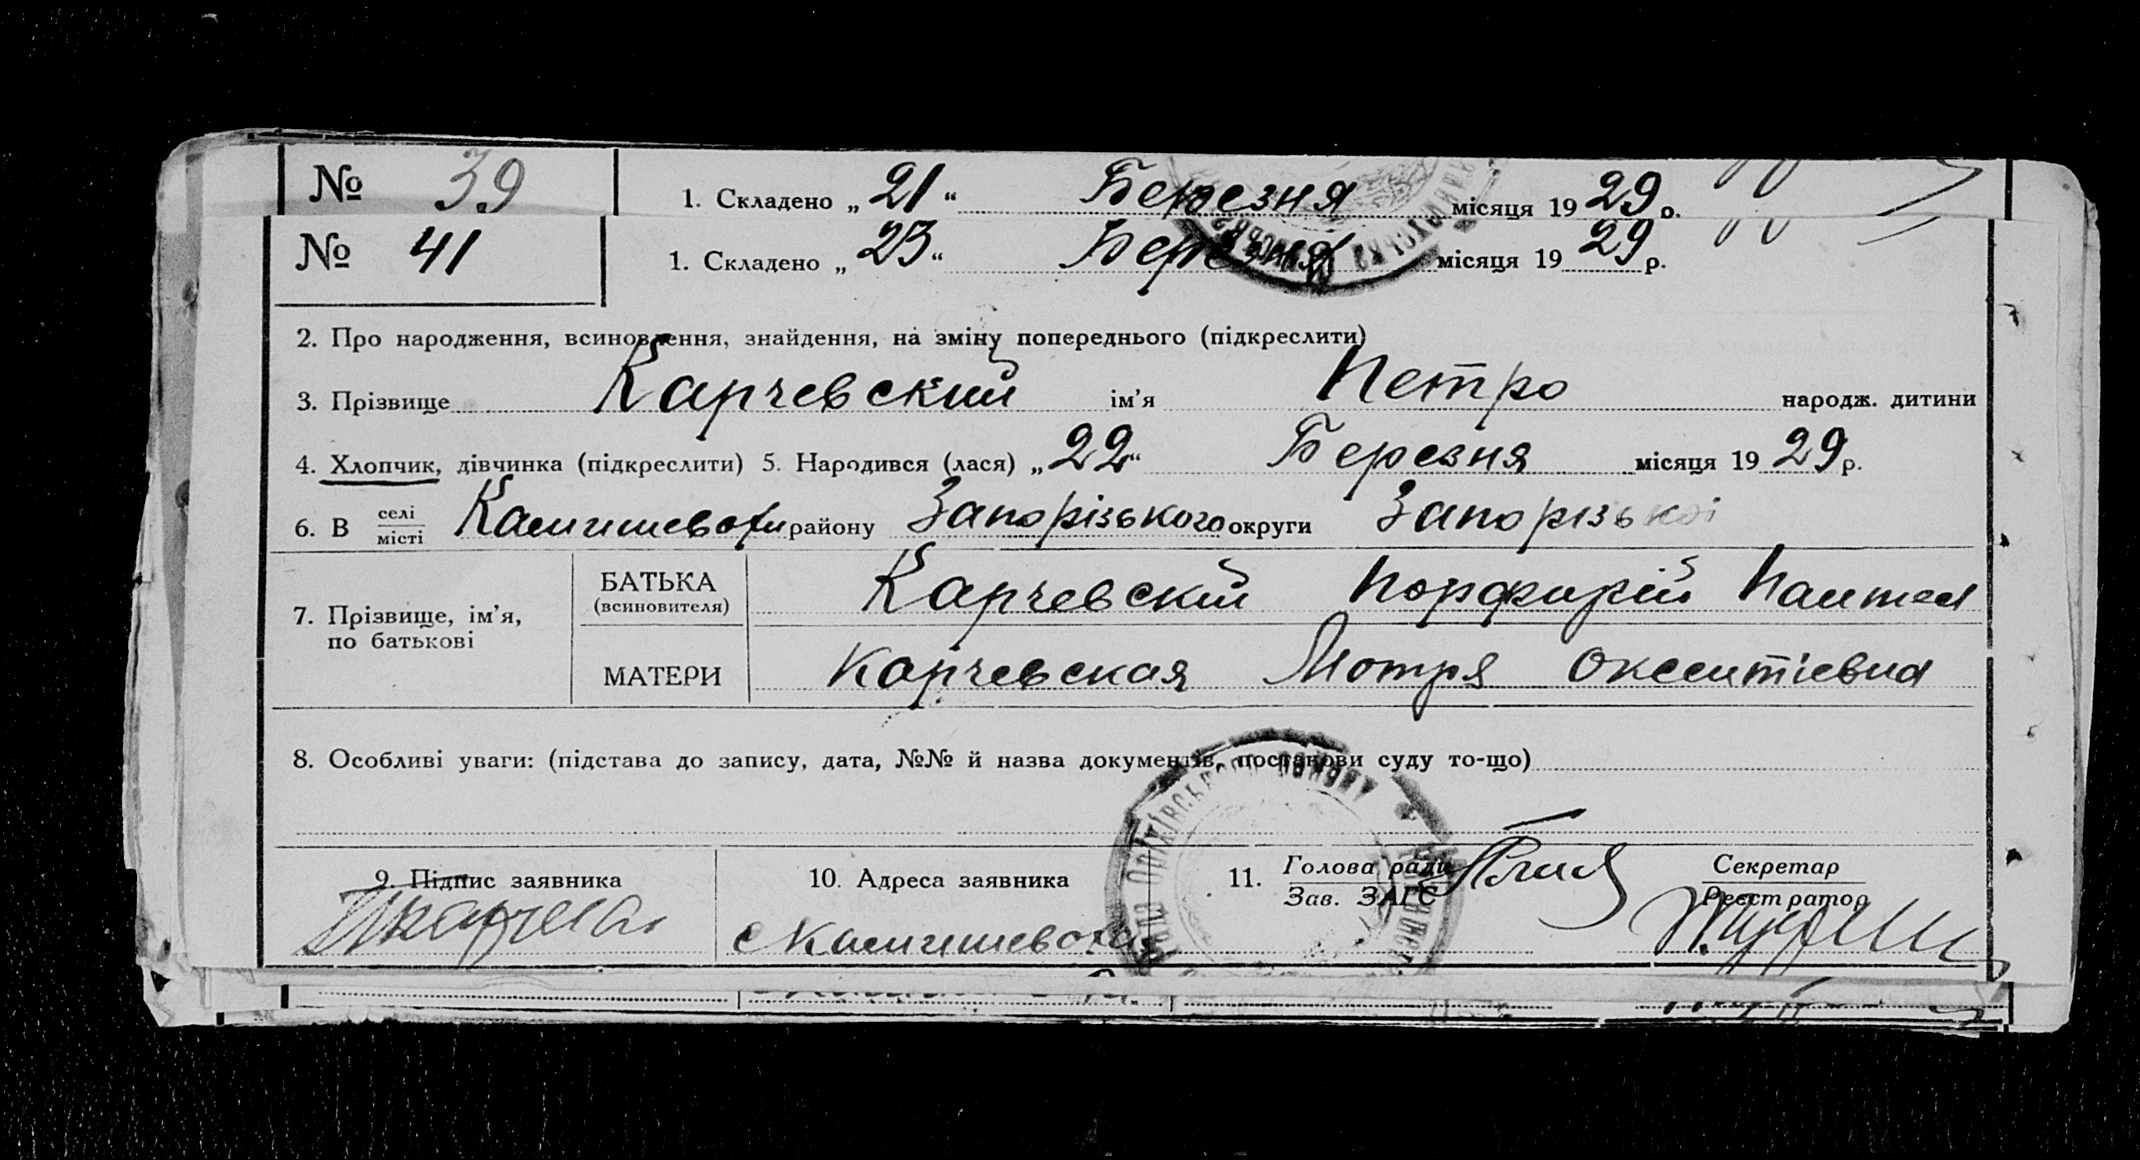 № 39 1. Складено „21“ Березня місяця 1929 р.
№ 41 1. Складено „23“ Березня місяця 1929 р.
2. Про народження, всиновлення, знайдення, на зміну попереднього (підкреслити)
3. Прізвище Карчевский ім’я Петро народж. дитини
4. Хлопчик, дівчинка (підкреслити) 5. Народився (лася) „22“ Березня місяця 1929 р.
6. В селі місті Камишеваха району Запорізького округи Запорізької
7. Прізвище, ім’я, по батькові
БАТЬКА (всиновителя) Карчевский Порфирій Пантел
МАТЕРИ Карчевская Мотря Оксентіевна
8. Особливі уваги: (підстава до запису, дата, №№ й назва документів, постанови суду то-що)
9. Підпис заявника 10. Адреса заявника 11. Голова ради Секретар
Зав. ЗАГС Реєстратор
с Камишеваха